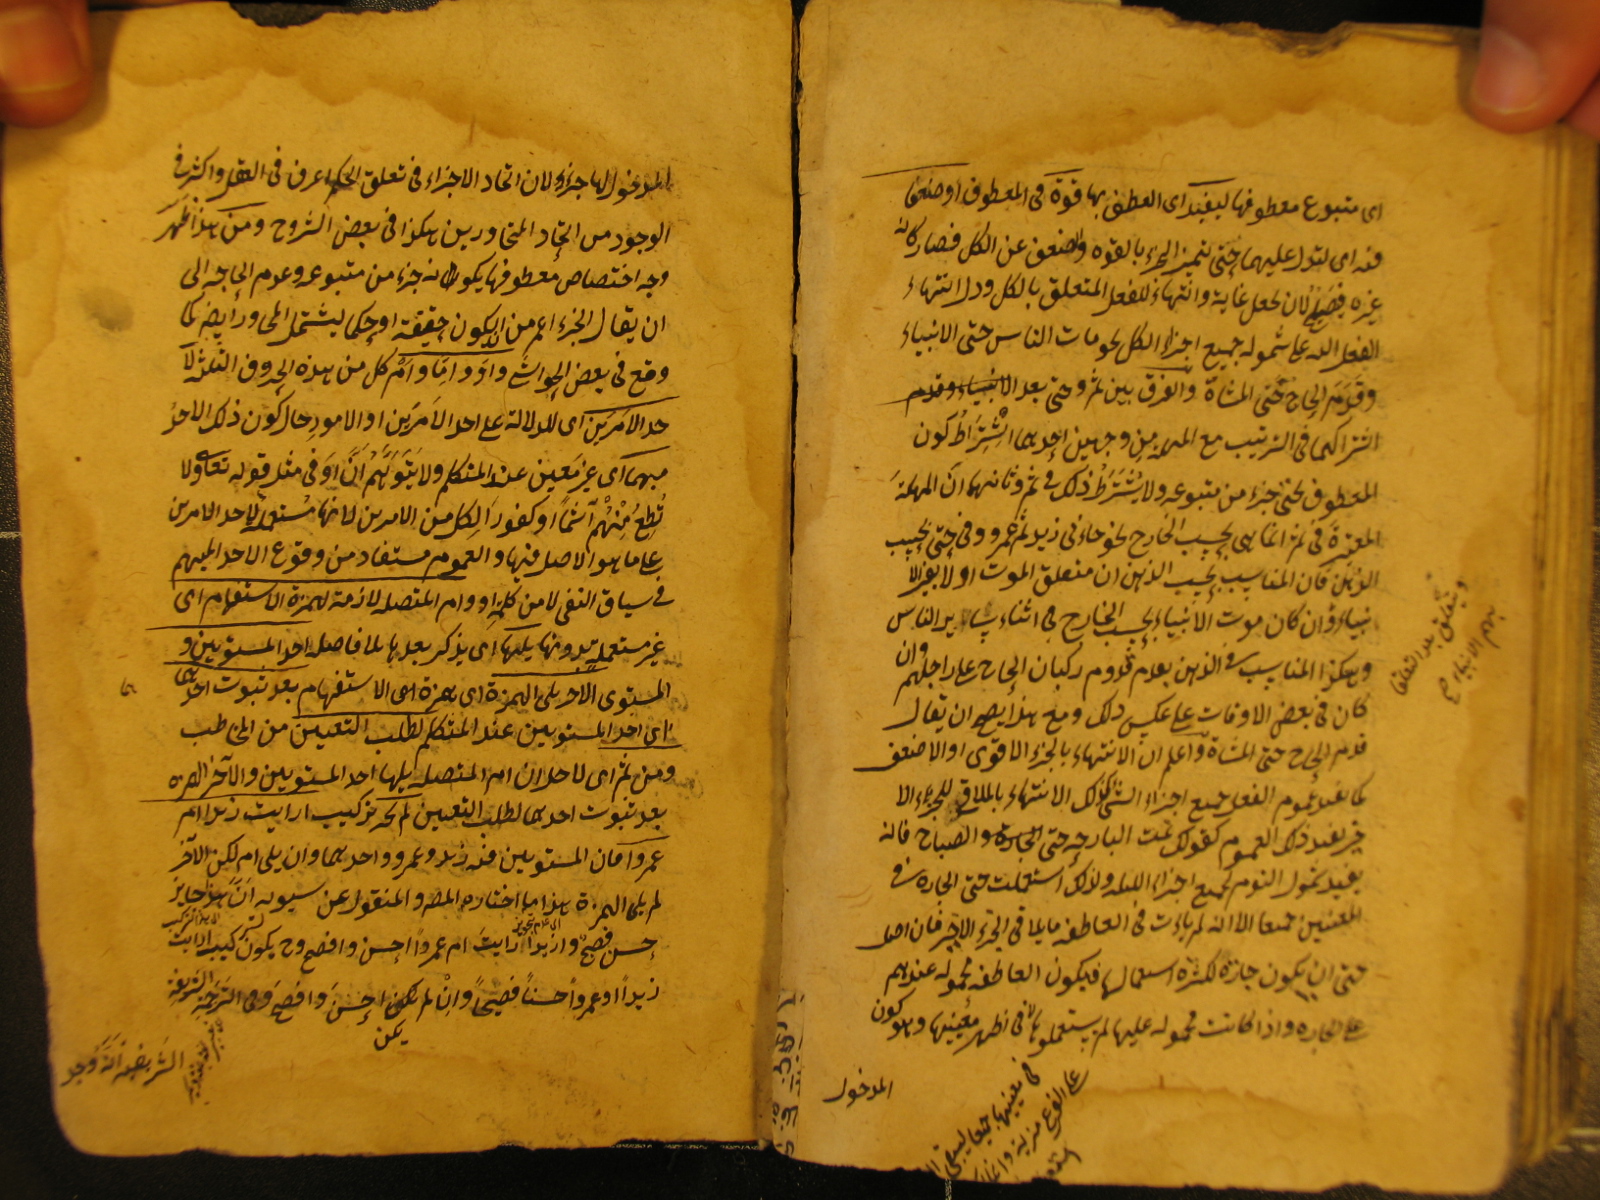 اى متبوع معطوفها ليفيد اى العطف بها قوة فى المعطوف او ضعفا
فيه اى لتدل عليهما حتى يتميز الجزء بالقوة والضعف عن الكل فصار كانه
غيره فصلح لان يجعل غاية وانتهاء للفعل المتعلق بالكل ودل انتهاء
الفعل اليه على شموله جميع اجزاء الكل نحو مات الناس حتى الانبياء
وقدم الحاج حتى المشاة والفرق بين ثم وحتى بعد
اشتراكهما فى الترتيب مع المهملة من وجهين احدهما اشتراط كون
المعطوف بحتى جزء من متبوعه ولا يشترط ذلك فى ثم وثانيهما ان المهلة
المعتبرة فى ثم انما هى بحسب الخارج نحو جاءنى زيد ثم عمرو وفى حتى بحسب
الذهن فان المناسب بحسب الذهن ان متعلق الموت اولا بغير الا
نبياء وان كان موت الانبياء بحسب الخارج فى اثناء سائر الناس
وهكذا المناسب فى الذهن بعدم قدوم ركبان الحاج على راجلهم وان
كان فى بعض الاوقات على عكس ذلك ومع هذا يصح ان يقال
قدم الحاج حتى المشاة واعلم ان الانتهاء بالجزء الاقوى او الاضعف
كما يفيد عموم الفعل جميع اجزاء الشئ كذلك الانتهاء بالملاقى للجزء الا
خير يفيد ذلك العموم كقولك نمت البارحة حتى والصباح فانه
يفيد شمول النوم لجميع اجزاء الليلة ولذلك استعملت حتى الجارة فى
المعنيين جميعا الا انه لم يأت فى العاطفة ما يلاقى الجزء الاخير فان اصل
حتى ان يكون جارة لكثرة استعمالها فيكون العاطفة محمولة عندهم
على الجارة واذا كانت محمولة عليها لم يستعملوها فى اظهر معنييها وهو كون
المدخول
ويتعلق بعد التعلق
بهم الانبياء صح
فى معنييها جميعا ليبقى
على الفرع مزية
المدخول لها جزء ولان اتحاد الاجزاء فى تعلق الحكم اعرف فى العقل واكثر فى
الوجود من اتحاد المتجاورين هكذا فى بعض الشروح ومن هذا ظهر
وجه اختصاص معطوفها بكونه جزء من متبوعه وعدم الحاجة الى
ان يقال الجزء اعم من ان يكون حقيقة او حكما ليشتمل المجاور ايضا كما
وقع فى بعض الحواشى واو واما وام كل من هذه الحروف الثلثة لا
حد الامرين اى للدلالة على احد الامرين او الامور حال كون ذلك الاحد
مبهما اى غير معين عند المتكلم ولا يتوهم ان او فى مثل قوله تعالى ولا
تطع منهم آثما او كفورا لكل من الامرين لانها مستعملة لاحد الامرين
على ما هو الاصل فيها والعموم مستفاد من وقوع الاحد المبهم
فى سياق النفى لا من كلمة او وام المتصلة لازمة لهمزة الاستفهام اى
غير مستعملة بدونها يليها اى يذكر بعدها بلا فاصلة احد المستويين و
المستوى الآخر يلى الهمزة اى همزة الاستفهام بعد ثبوت احدهما
اى احد المستويين عند المتكلم لطلب التعيين من المخاطب
ومن ثم اى لاجل ان ام المتصلة يليها احد المستويين والآخر الهمزة
بعد ثبوت احدهما لطلب التعيين لم يجز تركيب ارايت زيدا ام
عمروا فان المستويين فيه زيد وعمرو واحدهما وان يلى ام لكن الآخر
لم يلى الهمزة هذا ما اختاره المصـ والمنقول عن سيبويه ان هذا جايز
حسن فصيح وازيدا رايت ام عمروا احسن وافصح وح يكون تركيب ارايت
زيدا او عمروا حسنا فصيحا وان لم يكن احسن وافصح وفى الترجمة الشريفية
يكن
الشريفية انه وجد